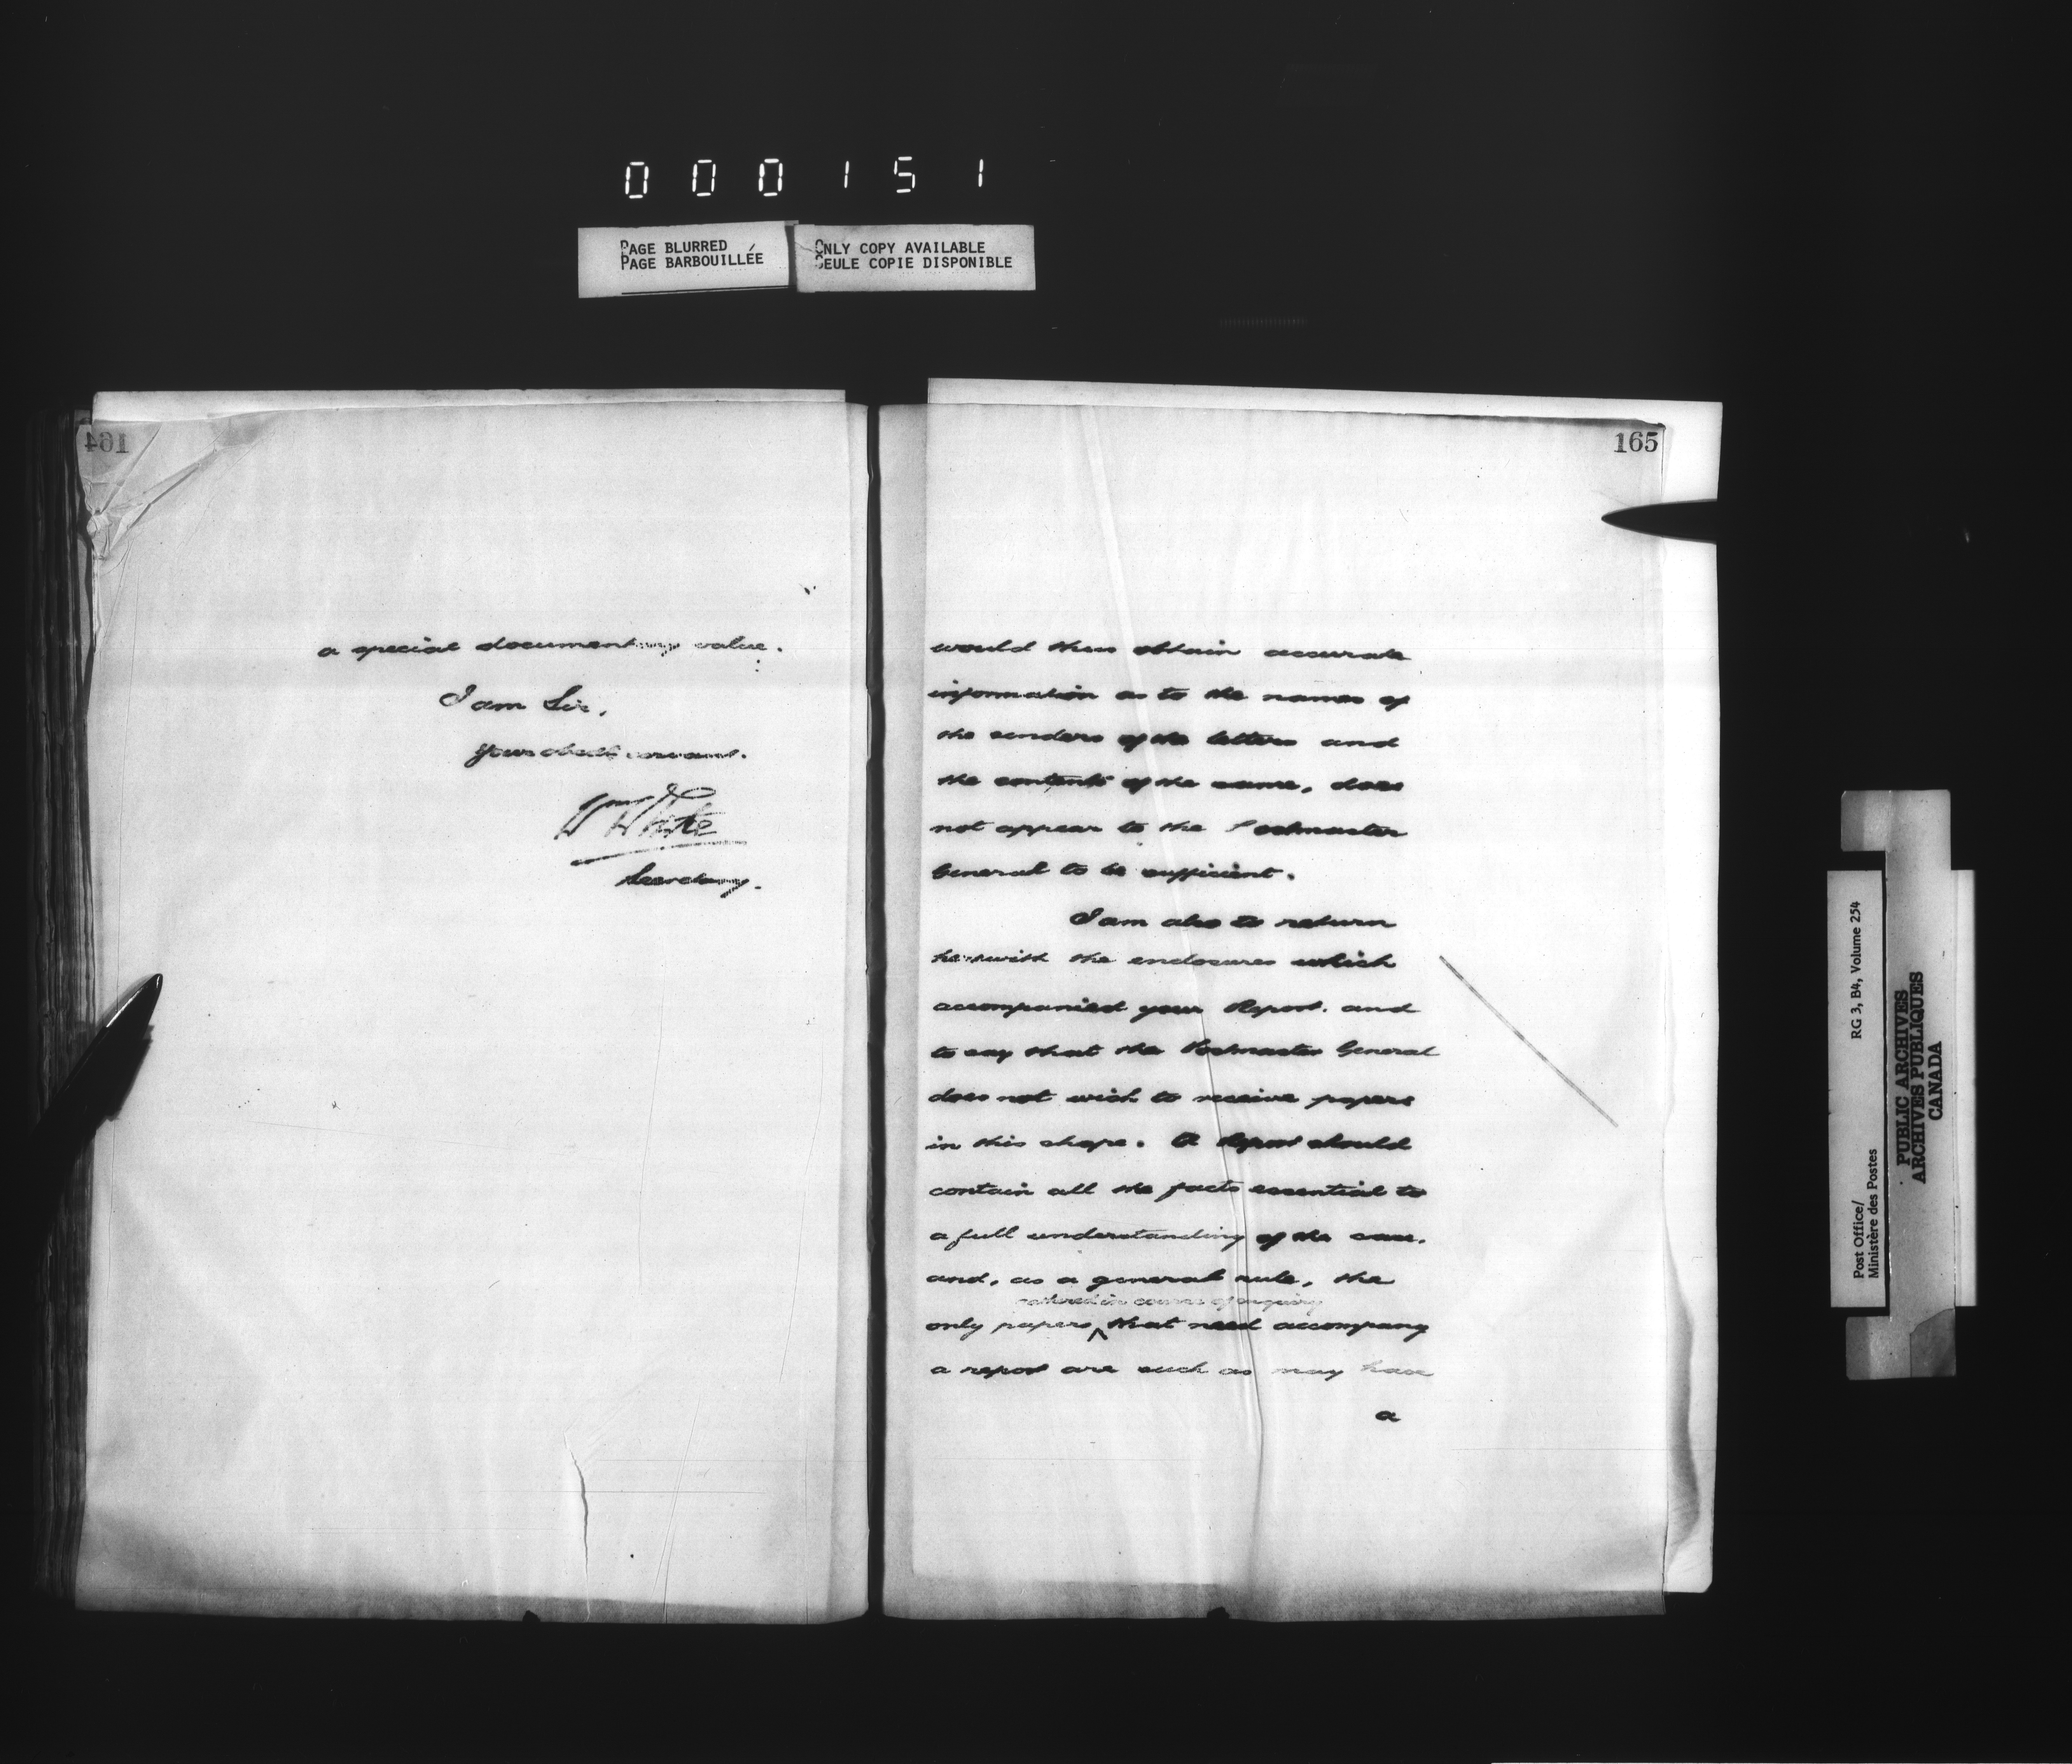 000151
PAGE BLURRED
PAGE BARBOUILLÉE
ONLY COPY AVAILABLE
SEULE COPIE DISPONIBLE
164
a special documentary value.
I am Sir,
Your obedt servant.
Wm White
Secretary.
165
would thus obtain accurate
information as to the names of
the senders of the letters and
the contents of the same, does
not appear to the Postmaster
General to be sufficient.
I am also to return
herewith the enclosures which
accompanied your Report. and
to say that the Postmaster General
does not wish to receive papers
in this shape. A Report should
contain all the facts essential to
a full understanding of the case.
and, as a general rule, the
gathered in course of enquiry
only papers ^ that need accompany
a report are such as may have
a
Post Office/
Ministère des Postes
RG 3, B4, Volume 254
PUBLIC ARCHIVES
ARCHIVES PUBLIQUES
CANADA